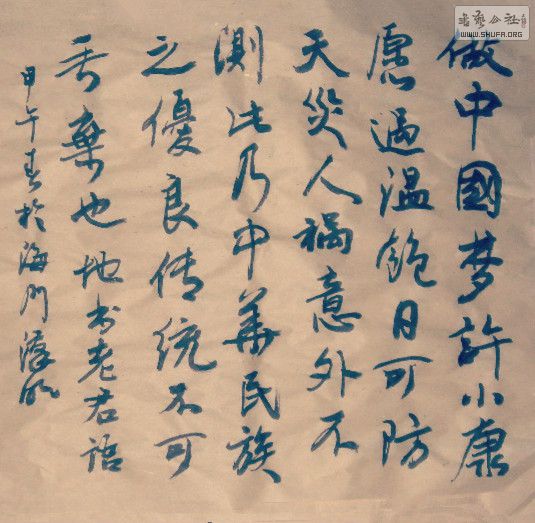 做中國梦許小康
慮過温飽日可防
天災人禍意外不
測此乃中華民族
之優良传统不可
丢棄也地书老君语
甲午春於海门
書藝公社
WWW.SHUFA.ORG